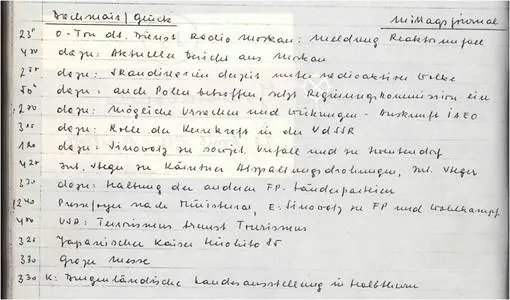 Bachmair/Glück Mittagsjournal
23" O-Ton dt. Dienst Radio Moskau: Meldung Reaktorunfall
430 dazu: Aktueller Bericht aus Moskau
200 dazu: Skandinavien derzeit unter radioaktiver Wolke
50" dazu: auch Polen betroffen, setzt Regierungskommission ein
200 dazu: Mögliche Ursachen und Wirkungen - Auskunft IAEO
315 dazu: Rolle der Kernkraft in der UdSSR
120 dazu: Sinowatz zu sowjet. Unfall und zu Zwentendorf
420 Int. Steger zu Kärntner Abspaltungsdrohungen, Int. Steger
330 dazu: Haltung der anderen FP-Länderparteien
1240 Pressefoyer nach Ministerrat, E: Sinowatz zu FP und Wahlkampf
400 USA: Terrorismus bremst Tourismus
320 Japanischer Kaiser Hirohito 85
330 Grazer Messe
330 K: Burgenländische Landesausstellung in Halbturn